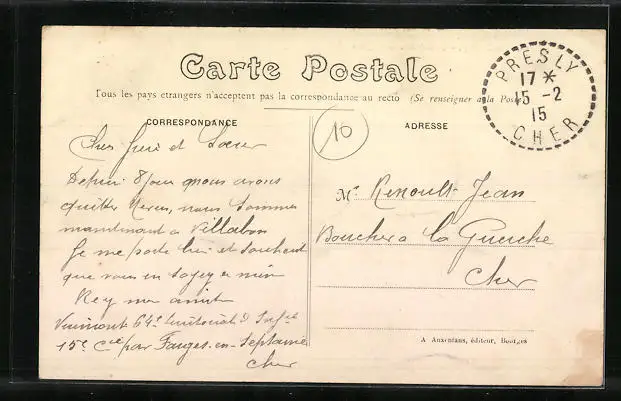 Carte Postale
Tous les pays etrangers n'acceptent pas la correspondance au recto (Se renseigner a la Poste)
PRESLY
17 *
15 -2
15
CHER
10
CORRESPONDANCE
ADRESSE
Cher frere et Soeur
Depuis 8 jour nous avons
quitter nous Sommes
maintenant a Villabon
Je me porte bien et souhait
que vous en soyez de
Vuimont 64e territorial d'Infie
15e Cie par Farges-en-Septaine
Cher
Mr. Renoult Jean
Boucher a la Guerche
Cher
A Auxenfans, éditeur, Bourges